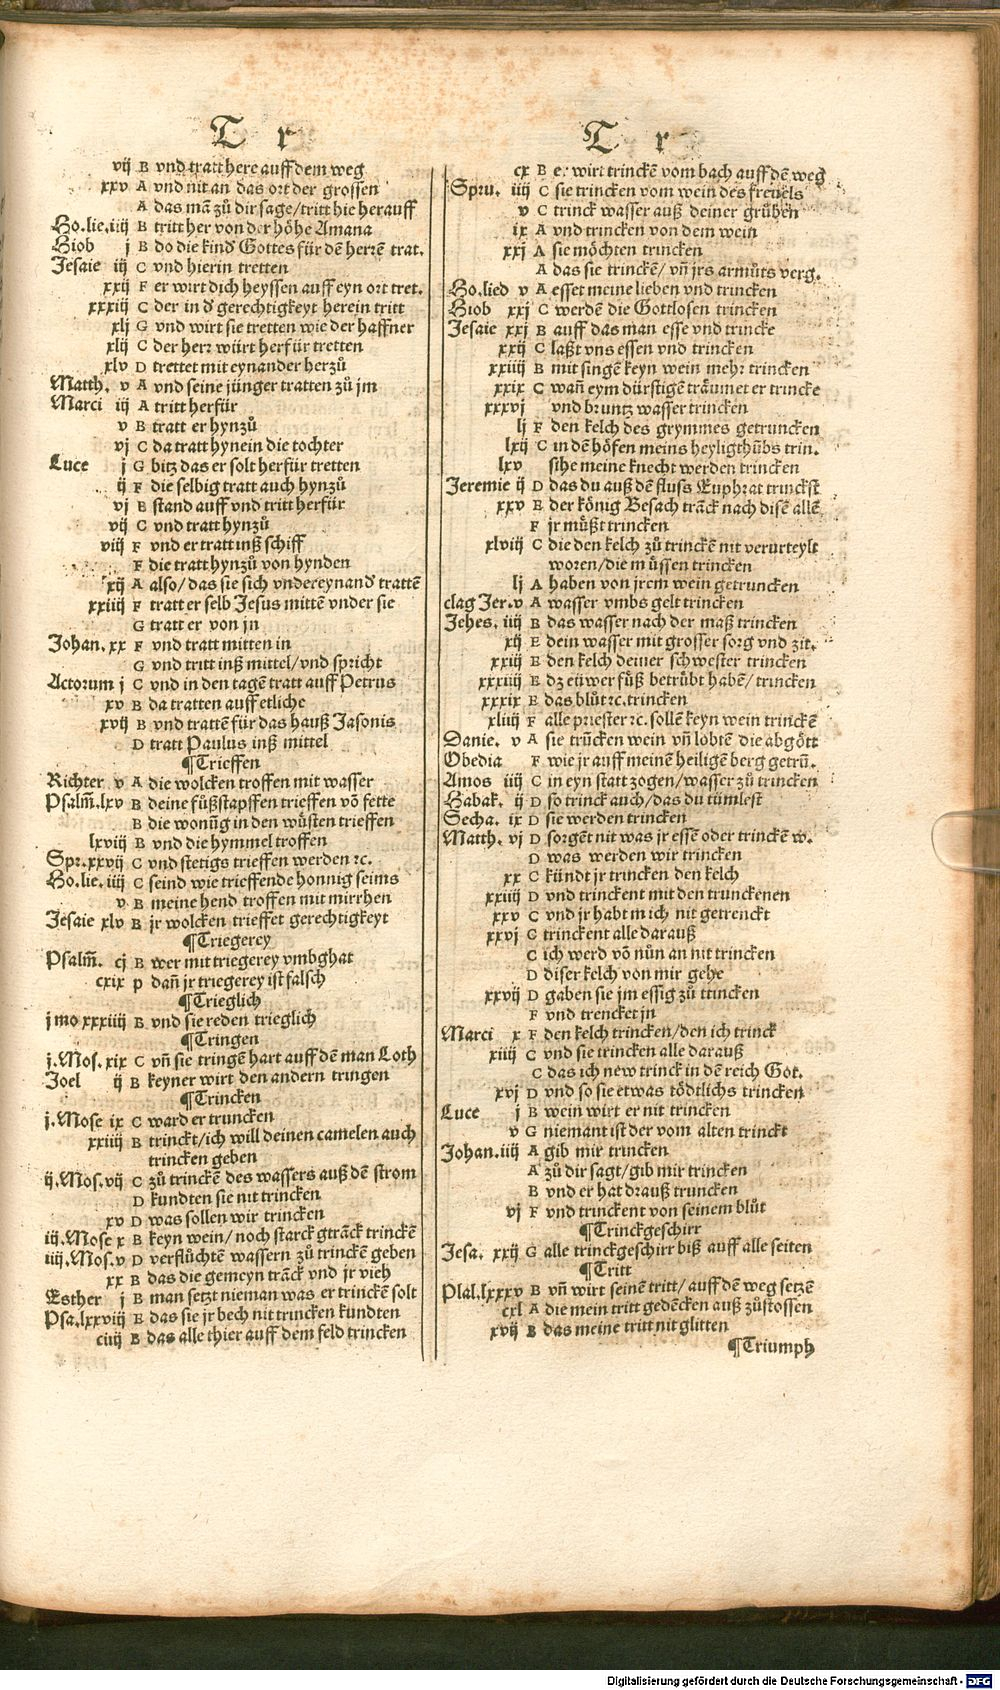 T r
vij B vnd tratt here auff dem weg
xxv A vnd nit an das ort der grossen
A das mā zů dir sage/tritt hie herauff
Ho.lie.iiij B tritt her von der höhe Amana
Hiob j B do die kind Gottes für dē herrē trat.
Jesaie iij C vnd hierin tretten
xxij F er wirt dich heyssen auff eyn ort tret.
xxxiij C der in d' gerechtigkeyt herein tritt
xlj G vnd wirt sie tretten wie der haffner
xlij C der herr würt herfür tretten
xlv D trettet mit eynander herzů
Matth. v A vnd seine jünger tratten zů jm
Marci iij A tritt herfür
v B tratt er hynzů
vj C da tratt hynein die tochter
Luce j G bitz das er solt herfür tretten
ij F die selbig tratt auch hynzů
vj B stand auff vnd tritt herfür
vij C vnd tratt hynzů
viij F vnd er tratt inß schiff
F die tratt hynzů von hynden
xij A also/das sie sich vndereynand' trattē
xxiiij F tratt er selb Jesus mittē vnder sie
G tratt er von jn
Johan. xx F vnd tratt mitten in
G vnd tritt inß mittel/vnd spricht
Actorum j C vnd in den tagē tratt auff Petrus
xv B da tratten auff etliche
xvij B vnd trattē für das hauß Jasonis
D tratt Paulus inß mittel
¶Trieffen
Richter v A die wolcken troffen mit wasser
Psalm̄.lxv B deine fůßstapffen trieffen vō fette
B die wonūg in den wůsten trieffen
lxviij B vnd die hymmel troffen
Spr.xxvij C vnd stetigs trieffen werden ꝛc.
Ho.lie.iiij C seind wie trieffende honnig seims
v B meine hend troffen mit mirrhen
Jesaie xlv B jr wolcken trieffet gerechtigkeyt
¶Triegerey
Psalm̄. cj B wer mit triegerey vmbghat
cxix p dañ jr triegerey ist falsch
¶Trieglich
j mo xxxiiij B vnd sie reden trieglich
¶Tringen
j.Mos. xix C vñ sie tringē hart auff dē man Loth
Joel ij B keyner wirt den andern tringen
¶Trincken
j.Mose ix C ward er truncken
xxiiij B trinckt/ich will deinen camelen auch
trincken geben
ij.Mos.vij C zů trinckē des wassers auß dē strom
D kundten sie nit trincken
xv D was sollen wir trincken
iij.Mose x B keyn wein/noch starck gtrāck trinckē
iiij.Mos.v D verflůchtē wassern zů trinckē geben
xx B das die gemeyn trāck vnd jr vieh
Esther j B man setzt nieman was er trinckē solt
Psa.lxxviij E das sie jr bech nit trincken kundten
ciiij B das alle thier auff dem feld trincken
T r
cx B er wirt trinckē vom bach auff dē weg
Spru. iiij C sie trincken vom wein des freuels
v C trinck wasser auß deiner grůben
ix A vnd trincken von dem wein
xxj A sie möchten trincken
A das sie trinckē/ vñ jrs armůts verg.
Ho.lied v A esset meine lieben vnd trincken
Hiob xxj C werdē die Gottlosen trincken
Jesaie xxj B auff das man esse vnd trincke
xxij C laßt vns essen vnd trincken
xxiiij B mit singē keyn wein mehr trincken
xxix C wañ eym dürstigē träumet er trincke
xxxvj vnd bruntz wasser trincken
lj F den kelch des grymmes getruncken
lxij C in dē höfen meins heyligthůbs trin.
lxv sihe meine knecht werden trincken
Jeremie ij D das du auß dē fluss Euphrat trinckst
xxv E der könig Besach trāck nach disē allē
F jr můßt trincken
xlviij C die den kelch zů trinckē nit verurteylt
woren/die müssen trincken
lj A haben von jrem wein getruncken
clag Jer.v A wasser vmbs gelt trincken
Jehes. iiij B das wasser nach der maß trincken
xij E dein wasser mit grosser sorg vnd zit.
xxiij E den kelch deiner schwester trincken
xxxiiij E dz eüwer fůß betrůbt habē/ trincken
xxxix E das blůt ꝛc. trincken
xliiij F alle priester ꝛc. sollē keyn wein trinckē
Danie. v A sie trūcken wein vñ lobtē die abgött
Obedia F wie jr auff meinē heiligē berg getrū.
Amos iiij C in eyn statt zogen/wasser zů trincken
Habak. ij D so trinck auch/das du tümlest
Secha. ix D sie werden trincken
Matth. vj D sorgēt nit was jr essē oder trinckē w.
D was werden wir trincken
xx C kündt jr trincken den kelch
xxiiij D vnd trinckent mit den trunckenen
xxv C vnd jr habt mich nit getrenckt
xxvj C trinckent alle darauß
C ich werd vō nůn an nit trincken
D diser kelch von mir gehe
xxvij D gaben sie jm essig zů ttincken
F vnd trencket jn
Marci x F den kelch trincken/den ich trinck
xiiij C vnd sie trincken alle darauß
C das ich new trinck in dē reich Got.
xvj D vnd so sie etwas tödtlichs trincken
Luce j B wein wirt er nit trincken
v G niemant ist der vom alten trinckt
Johan.iiij A gib mir trincken
A zů dir sagt/gib mir trincken
B vnd er hat drauß truncken
vj F vnd trinckent von seinem blůt
¶Trinckgeschirr
Jesa. xxij G alle trinckgeschirr biß auff alle seiten
¶Tritt
Plal.lxxxv B vñ wirt seinē tritt/ auff dē weg setzē
cxl A die mein tritt gedēcken auß zůstossen
xvij B das meine tritt nit glitten
¶Triumph
Digitalisierung gefördert durch die Deutsche Forschungsgemeinschaft - DFG